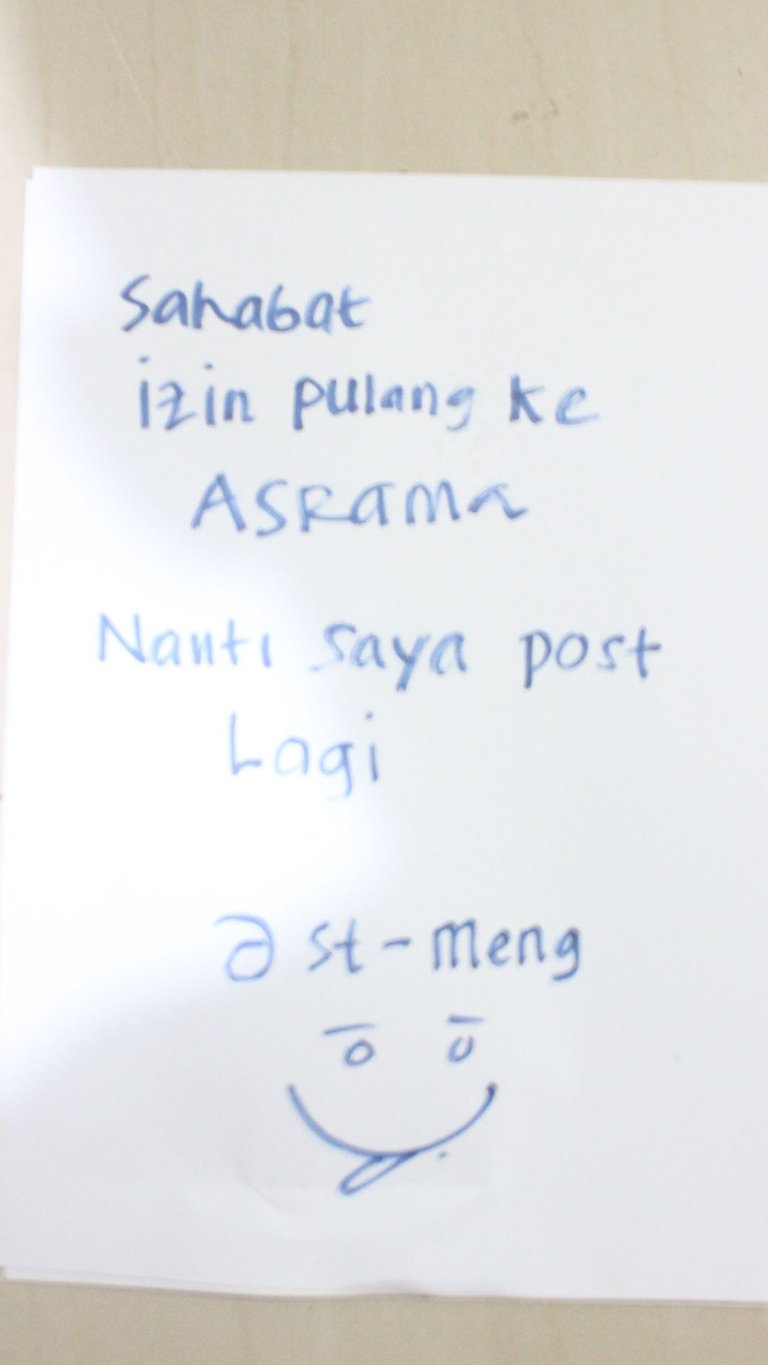 Sahabat
izin pulang ke
ASRama
Nanti saya post
Lagi
@ st-meng